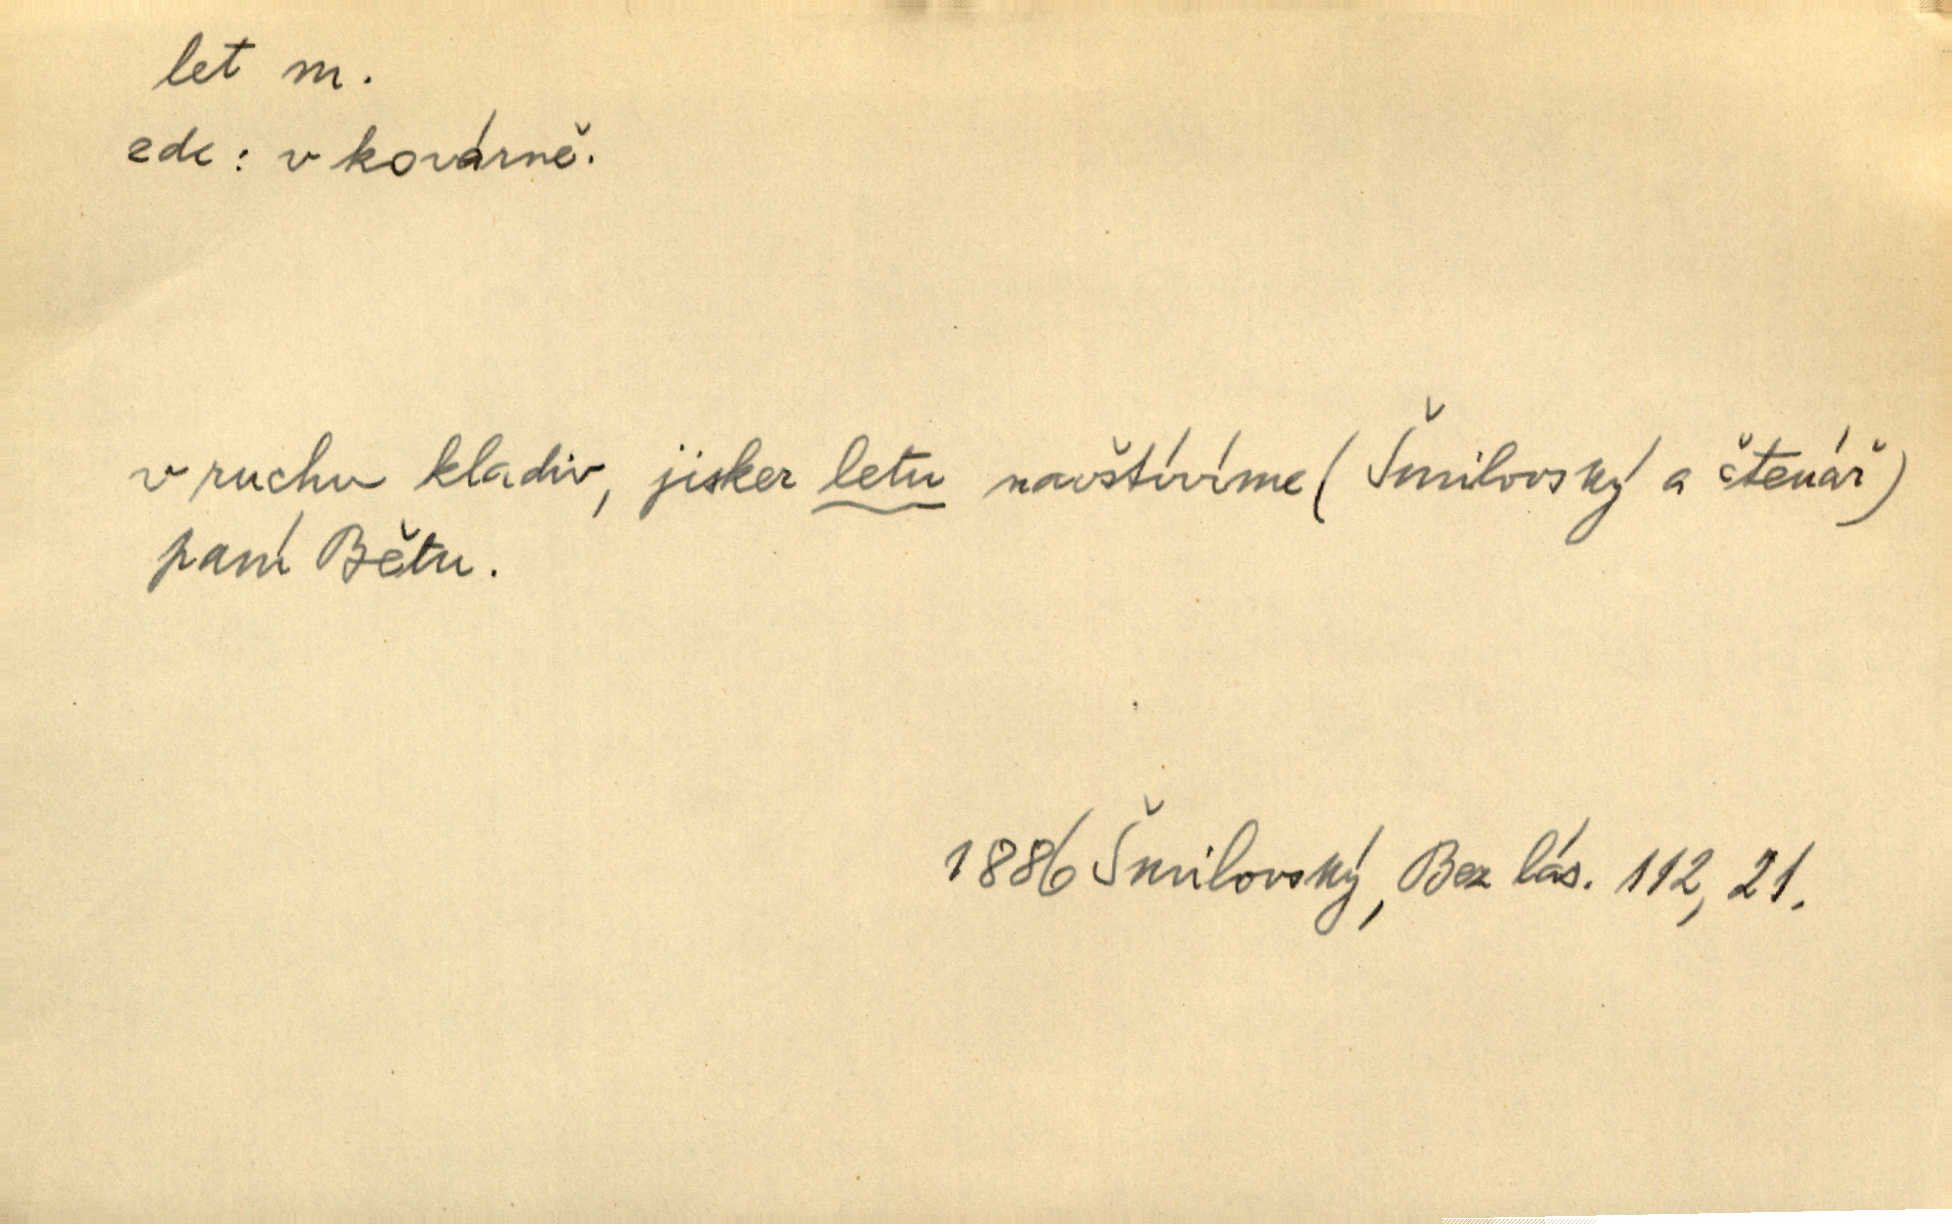 let m.
zde: v kovárně.
v ruchu kladiv, jisker letu navštívíme (Šmilovský a čtenář)
paní Bětu.
1886 Šmilovský, Bez lás. 112, 21.